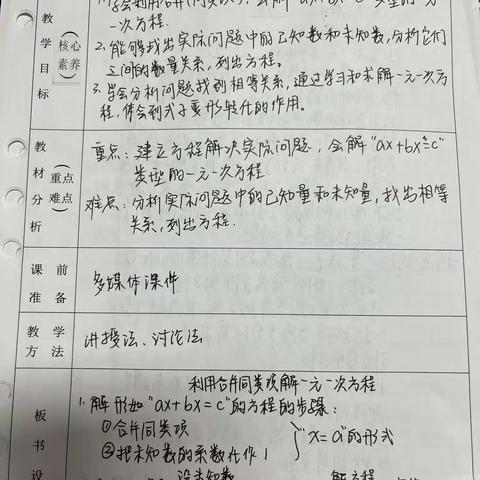 1.学会利用合并同类项,会解"ax+bx=c"类型的一元
一次方程.
教学目标(核心素养)
2.能够找出实际问题中的已知数和未知数,分析它们
之间的数量关系,列出方程。
3.学会分析问题找到相等关系,通过学习和求解一元一次方
程,体会到式子变形转化的作用。
教材分析(重点难点)
重点:建立方程解决实际问题,会解"ax+bx=c"
类型的一元一次方程
难点:分析实际问题中的已知量和未知量,找出相等
关系,列出方程.
课前准备
多媒体课件
教学方法
讲授法、讨论法
板书设
利用合并同类项解一元一次方程
1.解形如"ax+bx=c"的方程的步骤:
①合并同类项
②把未知数的系数化作1
"x=a"的形式
设未知数
解方程